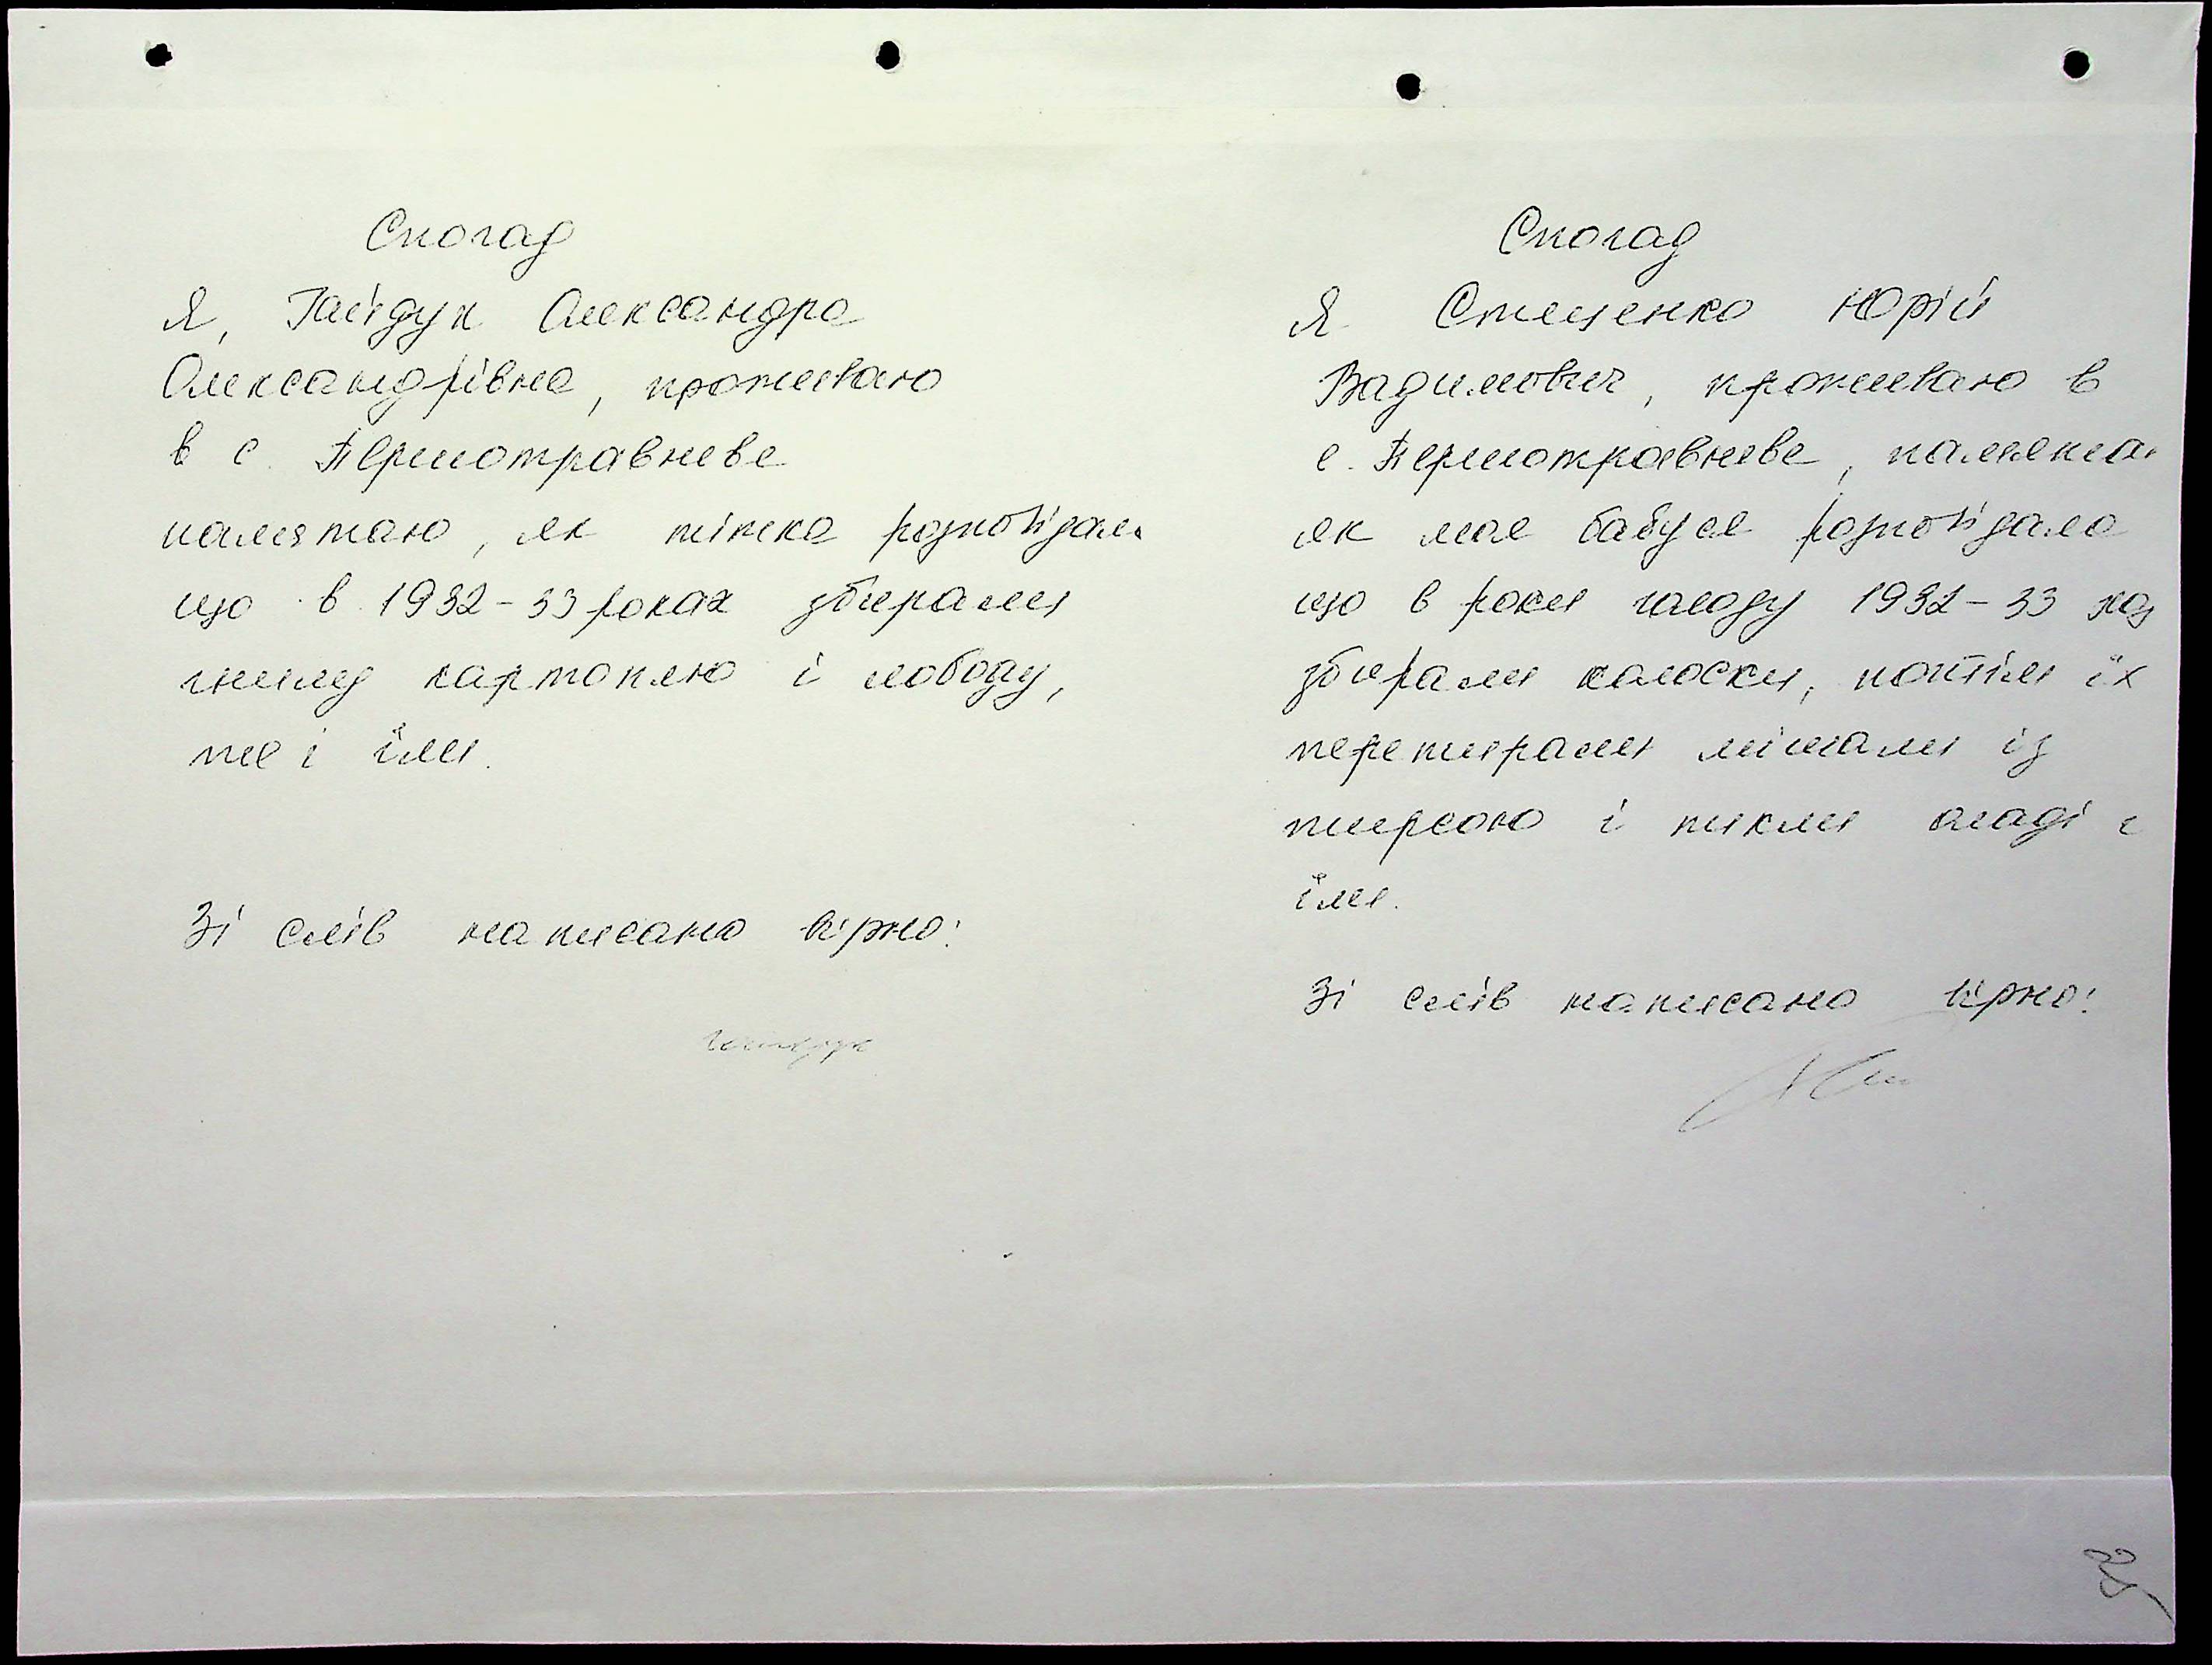 Спогад
Я, Гайдук Олександра
Олександрівна, проживаю
в с. Першотравневе
памятаю, як тітка розповідала
що в 1932-33 роках збирали
гнилу картоплю і лободу,
те і їли.
Зі слів написано вірно:
Гайдук
Спогад
Я Стеценко Юрій
Вадимович, проживаю в
с. Першотравневе, памята
як моя бабуся розповідала
що в роки голоду 1932-33
збирали колоски, потім їх
перетирали мішали із
тирсою і пекли оладі і
їли.
Зі слів написано вірно: